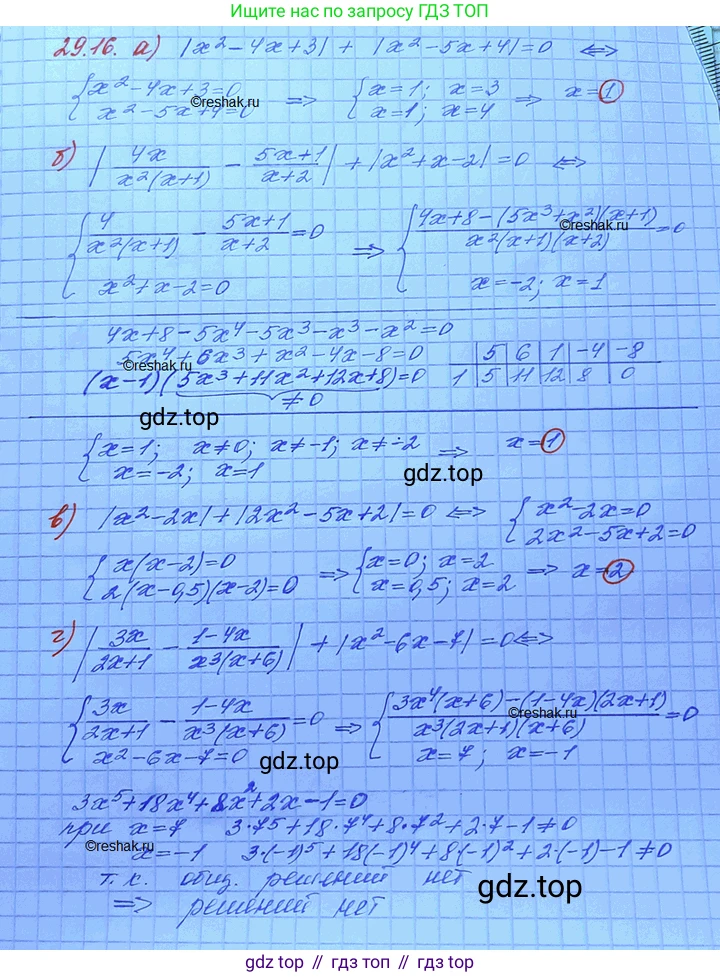 Ищите ответы по запросу ГДЗ ТОП
29.16. а) |x²-4x+3| + |x²-5x+4|=0 <=>
{x²-4x+3=0 => {x=1; x=3 => x=1
x²-5x+4=0 x=1; x=4
©reshak.ru
б) |4x/(x²(x+1)) - (5x+1)/(x+2)| + |x²+x-2|=0 <=>
{4/(x²(x+1)) - (5x+1)/(x+2)=0 => {(4x+8-(5x³+x²)(x+1))/(x²(x+1)(x+2))=0
x²+x-2=0 x=-2; x=1
©reshak.ru
4x+8-5x⁴-5x³-x³-x²=0
5x⁴+6x³+x²-4x-8=0 | 5 | 6 | 1 | -4 | -8
(x-1)(5x³+11x²+12x+8)=0 1 | 5 | 11 | 12 | 8 | 0
≠0
©reshak.ru
gdz.top
{x=1; x≠0; x≠-1; x≠-2 => x=1
x=-2; x=1
gdz.top
в) |x²-2x|+|2x²-5x+2|=0 <=> {x²-2x=0
2x²-5x+2=0
{x(x-2)=0 => {x=0; x=2 => x=2
2(x-0,5)(x-2)=0 x=0,5; x=2
г) |3x/(2x+1) - (1-4x)/(x³(x+6))| + |x²-6x-7|=0 <=>
{3x/(2x+1) - (1-4x)/(x³(x+6))=0 => {(3x⁴(x+6)-(1-4x)(2x+1))/(x³(2x+1)(x+6))=0
x²-6x-7=0 x=7; x=-1
©reshak.ru
gdz.top
3x⁵+18x⁴+8x²+2x-1=0
при x=7 3·7⁵+18·7⁴+8·7²+2·7-1≠0
x=-1 3·(-1)⁵+18(-1)⁴+8(-1)²+2·(-1)-1≠0
©reshak.ru
т.к. общ. решений нет
=> решений нет
gdz.top
gdz.top // гдз.топ // гдз топ